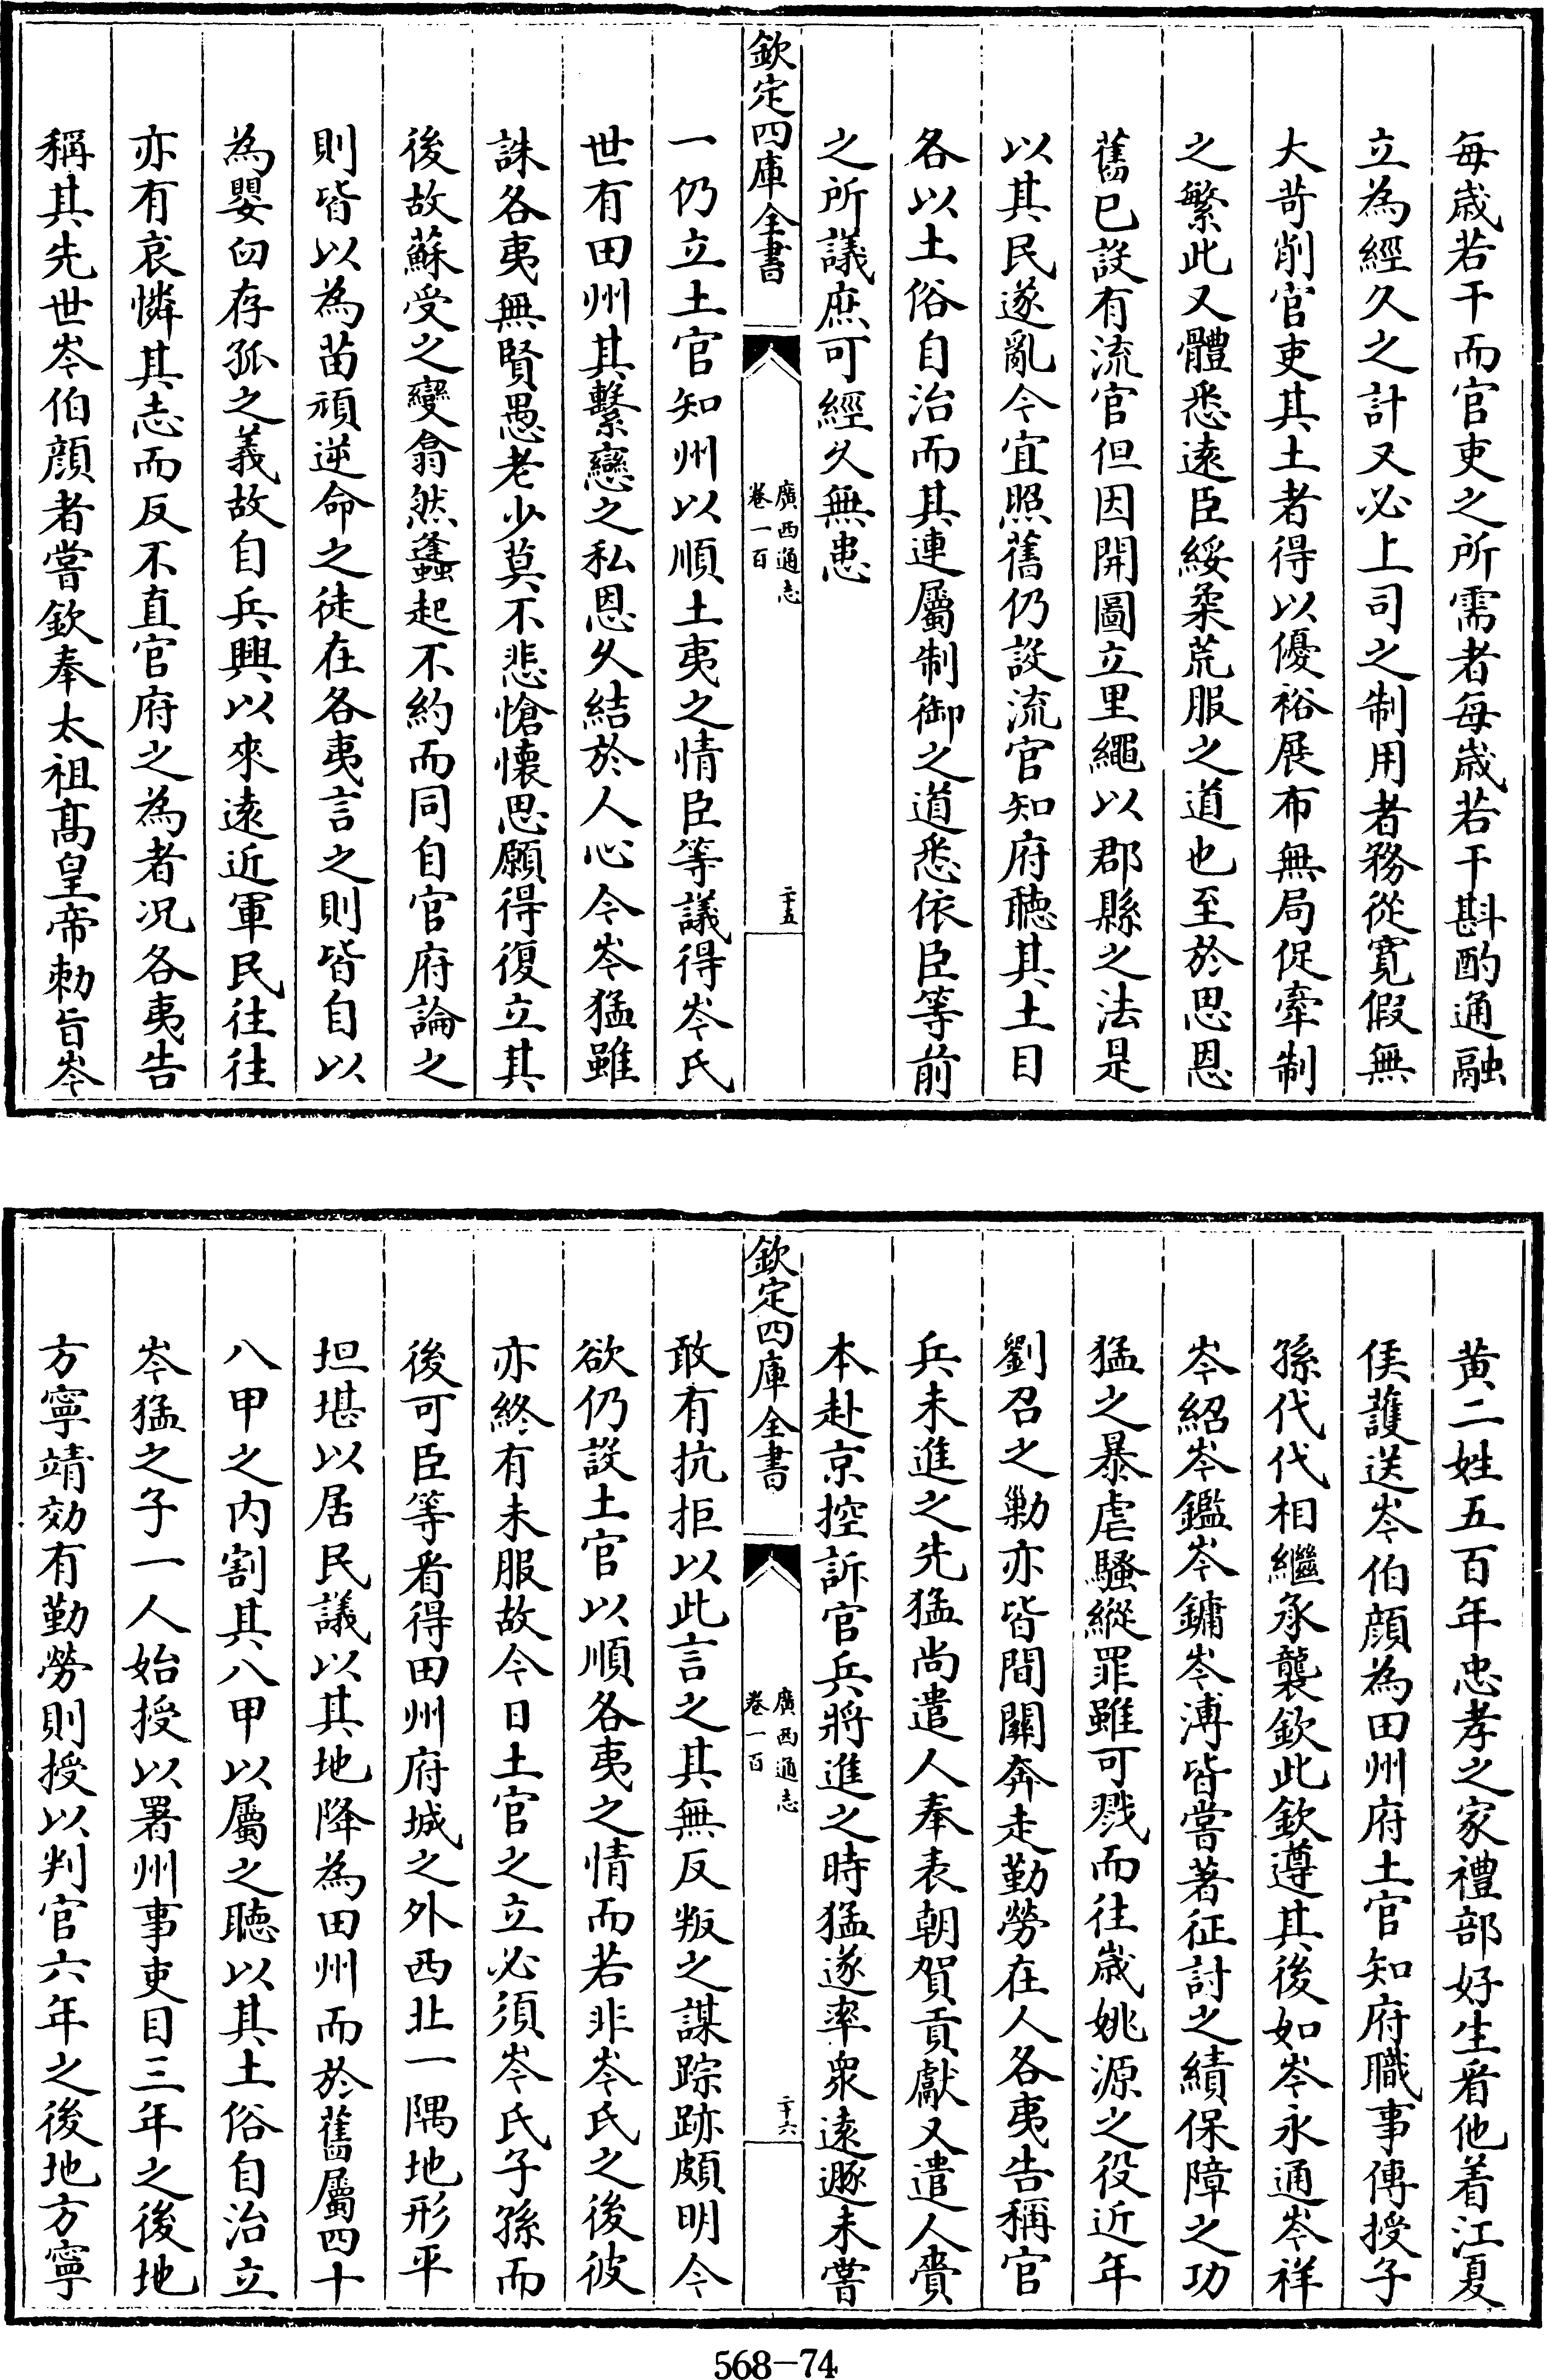 每歳若干而官吏之所需者每歳若干斟酌通融
立為經久之計又必上司之制用者務從寛假無
大苛削官吏其土者得以優裕展布無局促牽制
之繁此又體悉遠臣綏柔荒服之道也至於思恩
舊已設有流官但因開圖立里繩以郡縣之法是
以其民遂亂今宜照舊仍設流官知府聽其土目
各以土俗自治而其連屬制御之道悉依臣等前
之所議庶可經久無患
欽定四庫全書
廣西通志
卷一百
二十五
一仍立土官知州以順土夷之情臣等議得岑氏
世有田州其繫戀之私恩久結於人心今岑猛雖
誅各夷無賢愚老少莫不悲愴懷思願得復立其
後故蘇受之變翕然蠭起不約而同自官府論之
則皆以為苗頑逆命之徒在各夷言之則皆自以
為嬰臼存孤之義故自兵興以來遠近軍民往往
亦有哀憐其志而反不直官府之為者况各夷告
稱其先世岑伯顔者嘗欽奉太祖髙皇帝勅旨岑
黄二姓五百年忠孝之家禮部好生看他着江夏
侯護送岑伯顔為田州府土官知府職事傳授子
孫代代相繼承襲欽此欽遵其後如岑永通岑祥
岑紹岑鑑岑鏞岑溥皆嘗著征討之績保障之功
猛之暴虐騷縱罪雖可戮而往歳姚源之役近年
劉召之勦亦皆間關奔走勤勞在人各夷告稱官
兵未進之先猛尚遣人奉表朝賀貢獻又遣人賫
本赴京控訴官兵將進之時猛遂率衆遠遯未嘗
欽定四庫全書
廣西通志
卷一百
二十六
敢有抗拒以此言之其無反叛之謀踪跡頗明今
欲仍設土官以順各夷之情而若非岑氏之後彼
亦終有未服故今日土官之立必須岑氏子孫而
後可臣等看得田州府城之外西北一隅地形平
坦堪以居民議以其地降為田州而於舊屬四十
八甲之内割其八甲以屬之聽以其土俗自治立
岑猛之子一人始授以署州事吏目三年之後地
方寧靖効有勤勞則授以判官六年之後地方寧
568-74